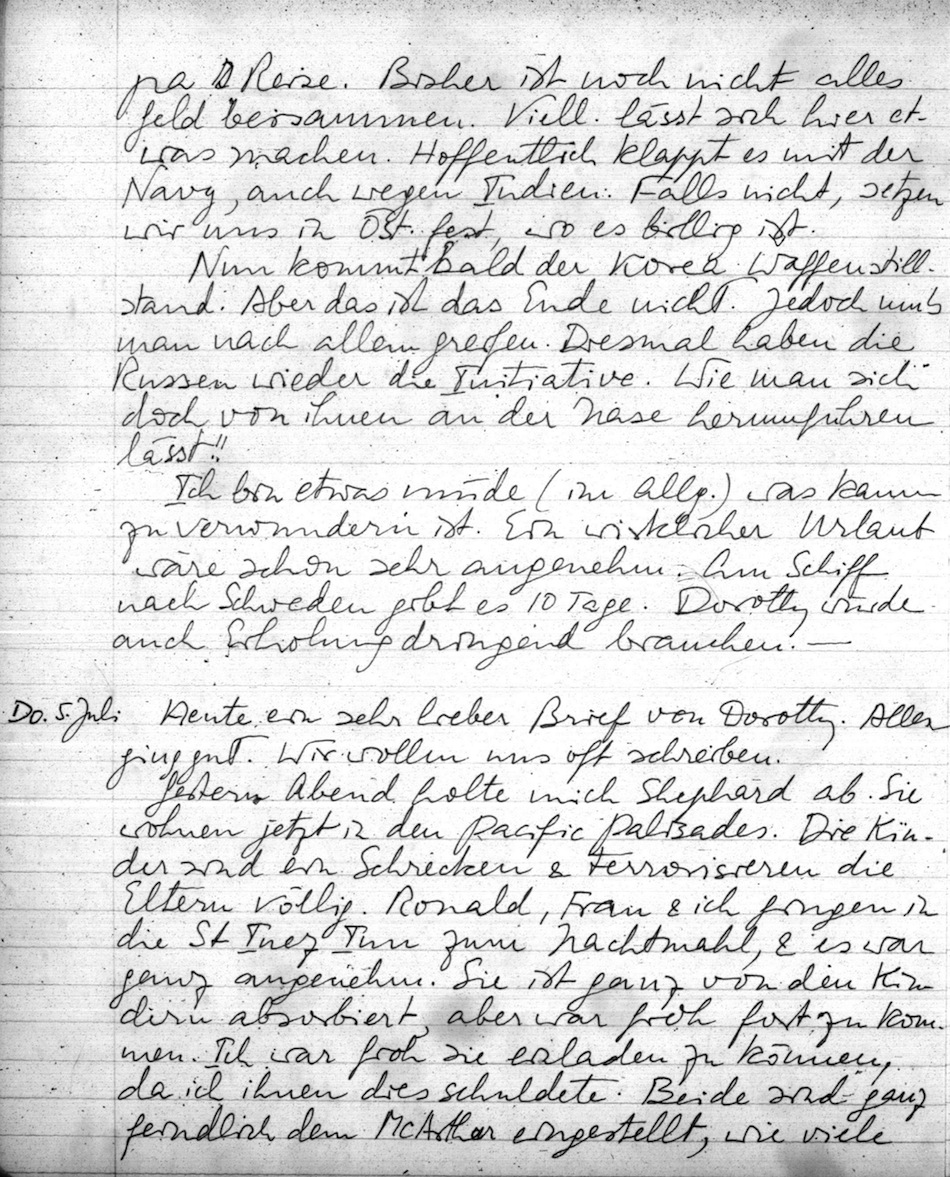 pa Reise. Bisher ist noch nicht alles
Geld beisammen. Viell. lässt sich hier et-
was machen. Hoffentlich klappt es mit der
Navy, auch wegen Indien. Falls nicht, setzen
wir uns in Öst. fest, wo es billig ist.
Nun kommt bald der Korea Waffenstill-
stand. Aber das ist das Ende nicht. Jedoch muß
man nach allem greifen. Diesmal haben die
Russen wieder die Initiative. Wie man sich
doch von ihnen an der Nase herumführen
lässt!!
Ich bin etwas müde (im allg.) was kaum
zu verwundern ist. Ein wirklicher Urlaub
wäre schon sehr angenehm. Am Schiff
nach Schweden gibt es 10 Tage. Dorothy würde
auch Erholung dringend brauchen. —
Do. 5. Juli Heute ein sehr lieber Brief von Dorothy. Alles
ging gut. Wir wollen uns oft schreiben.
Gestern Abend holte mich Shephard ab. Sie
wohnen jetzt in den Pacific Palisades. Die Kin-
der sind ein Schrecken & terrorisieren die
Eltern völlig. Ronald, Frau & ich gingen in
die St Inez Inn zum Nachtmahl, & es war
ganz angenehm. Sie ist ganz von den Kin
dern absorbiert, aber war froh fort zu kom-
men. Ich war froh sie einladen zu können,
da ich ihnen dies schuldete. Beide sind ganz
feindlich dem McArthur eingestellt, wie viele